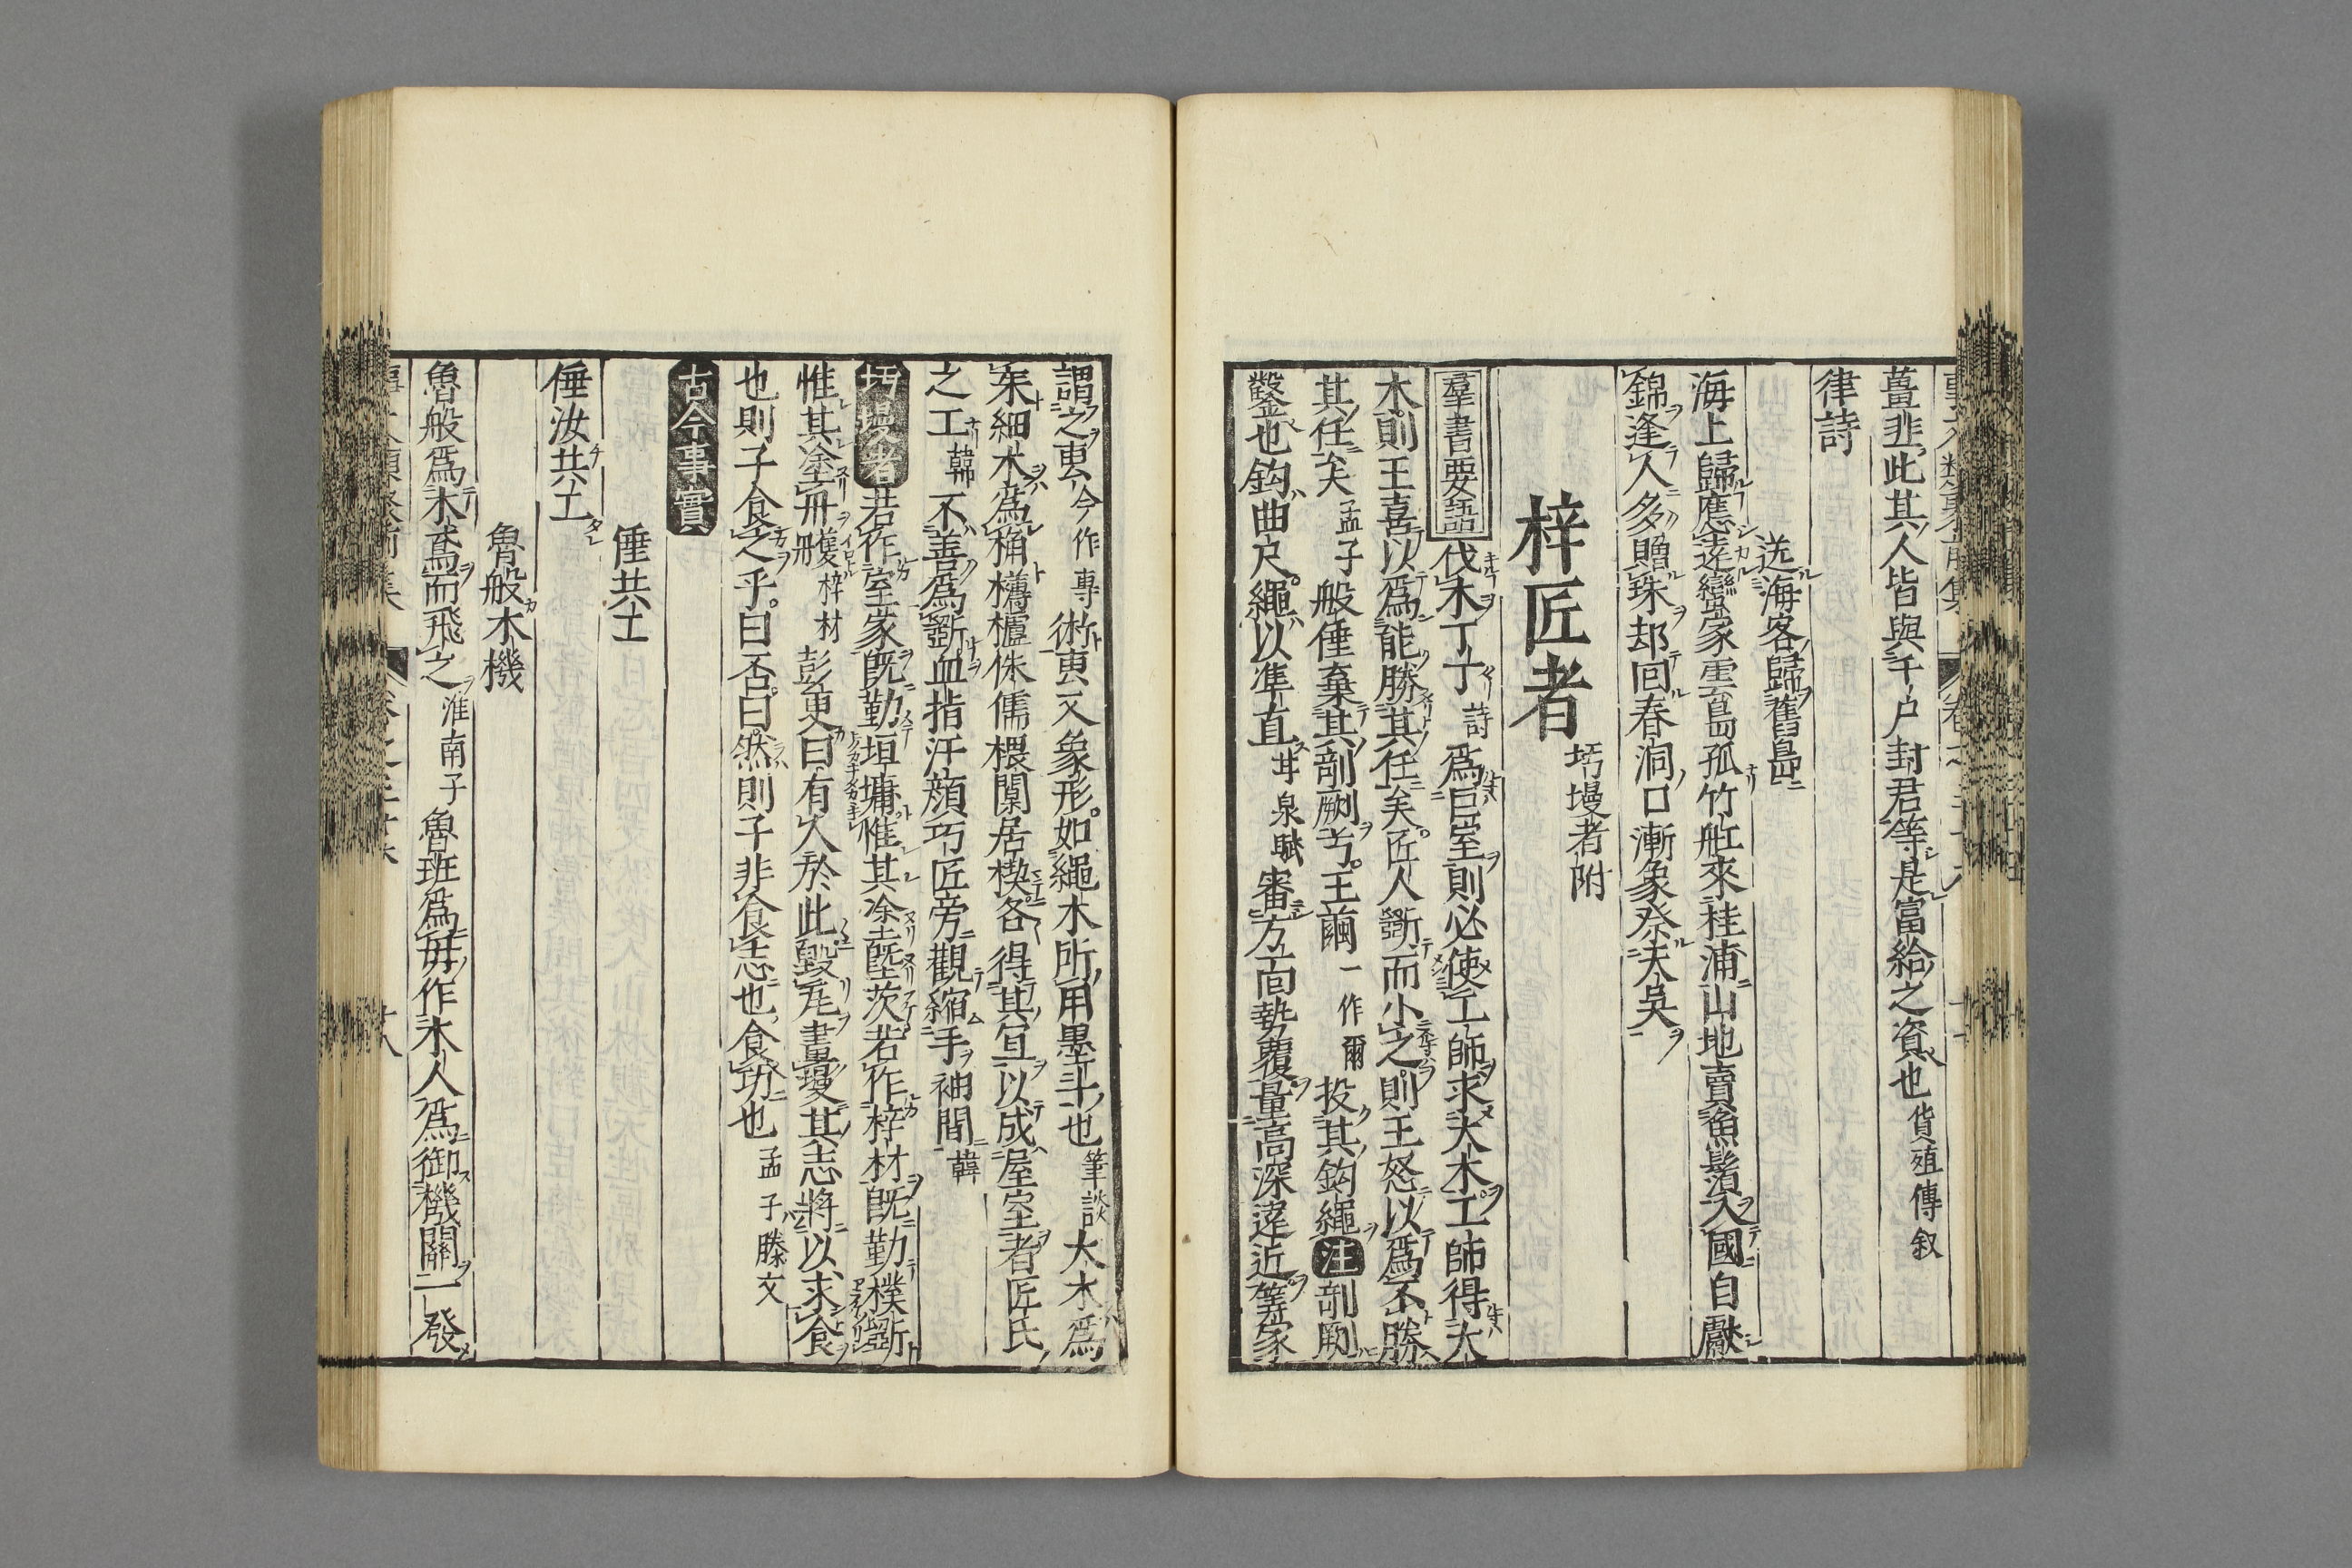 薑韭此其人皆與千户封君等是富給之資也貨殖傳叙
律詩
送海客歸舊島
海上歸應遠蠻家雲島孤竹舡來桂浦山地賣魚鬚入國自獻
錦逢人多贈珠却回春洞口漸象祭天吳
梓匠者 圬墁者附
羣書要語伐木丁丁詩爲巨室則必使工師求大木工師得大
木則王喜以爲能勝其任矣匠人斲而小之則王怒以爲不勝
其任矣孟子般倕棄其剞劂兮王繭一作爾投其鈎繩注剞劂
鑿也鈎曲尺繩以準直甘泉賦審方面勢覆量高深遠近筭家
謂之叀今作專術叀文象形如繩木所用墨斗也筆談大木爲
杗細木爲桷欂櫨侏儒椳闑居楔各得其宜以成屋室者匠氏
之工韓不善爲斲血指汗顔巧匠旁觀縮手袖間韓
圬墁者若作室家既勤垣墉惟其塗塈茨若作梓材既勤樸斲
惟其塗丹雘梓材彭更曰有人於此毀瓦畫墁其志將以求食
也則子食之乎曰否曰然則子非食志也食功也孟子滕文
古今事實
倕共工
倕汝共工
魯般木機
魯般爲木鳶而飛之淮南子魯班爲母作木人爲御機關一發